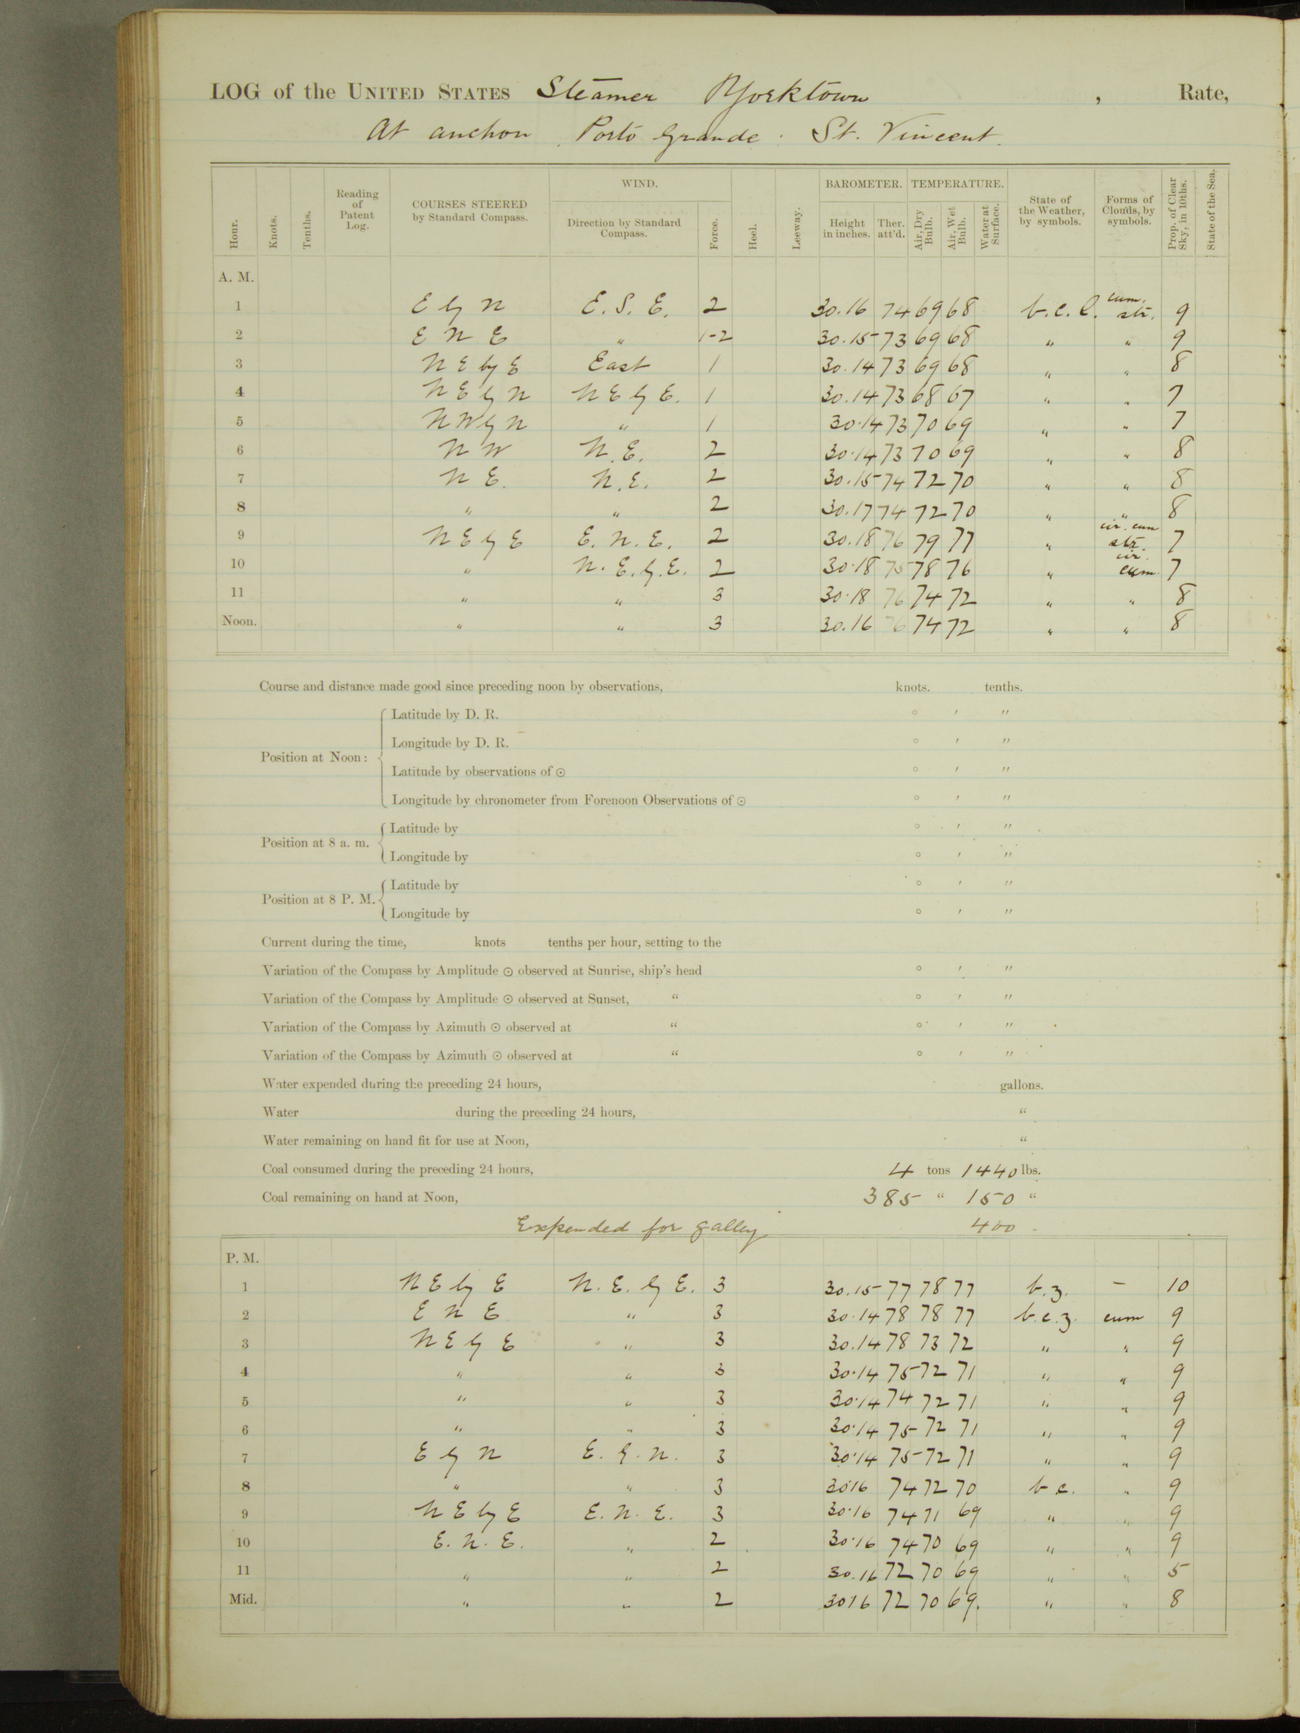 LOG of the UNITED STATES Steamer Yorktown , Rate,
At anchor Porto Grande St. Vincent.
Hour. Knots. Tenths. Reading of Patent Log. COURSES STEERED by Standard Compass. WIND. Direction by Standard Compass. Force. Heel. Leeway. BAROMETER. Height in inches. Ther. att'd. TEMPERATURE. Air, Dry Bulb. Air, Wet Bulb. Water at Surface. State of the Weather, by symbols. Forms of Clouds, by symbols. Prop. of Clear Sky, in 10ths. State of the Sea.
A. M.
1 E by N E. S. E. 2 30.16 74 69 68 b.c.l. cum. str. 9
2 E N E " 1-2 30.15 73 69 68 " " 9
3 N E by E East 1 30.14 73 69 68 " " 8
4 N E by N N E by E. 1 30.14 73 68 67 " " 7
5 N W by N " 1 30.14 73 70 69 " " 7
6 N W N. E. 2 30.14 73 70 69 " " 8
7 N E. N. E. 2 30.15 74 72 70 " " 8
8 " " 2 30.17 74 72 70 " " 8
9 N E by E E. N. E. 2 30.18 76 79 77 " cir. cum str. 7
10 " N. E. by E. 2 30.18 75 78 76 " cir. cum. 7
11 " " 3 30.18 76 74 72 " " 8
Noon. " " 3 30.16 76 74 72 " " 8
Course and distance made good since preceding noon by observations, knots. tenths.
Position at Noon: Latitude by D. R. ° ′ ″
Longitude by D. R. ° ′ ″
Latitude by observations of ☉ ° ′ ″
Longitude by chronometer from Forenoon Observations of ☉ ° ′ ″
Position at 8 a. m. Latitude by ° ′ ″
Longitude by ° ′ ″
Position at 8 P. M. Latitude by ° ′ ″
Longitude by ° ′ ″
Current during the time, knots tenths per hour, setting to the
Variation of the Compass by Amplitude ☉ observed at Sunrise, ship's head ° ′ ″
Variation of the Compass by Amplitude ☉ observed at Sunset, " ° ′ ″
Variation of the Compass by Azimuth ☉ observed at " ° ′ ″
Variation of the Compass by Azimuth ☉ observed at " ° ′ ″
Water expended during the preceding 24 hours, gallons.
Water during the preceding 24 hours, "
Water remaining on hand fit for use at Noon, "
Coal consumed during the preceding 24 hours, 4 tons 1440 lbs.
Coal remaining on hand at Noon, 385 " 150 "
Expended for galley 400
P. M.
1 N E by E N. E. by E. 3 30.15 77 78 77 b.z. – 10
2 E N E " 3 30.14 78 78 77 b.c.z. cum 9
3 N E by E " 3 30.14 78 73 72 " " 9
4 " " 3 30.14 75 72 71 " " 9
5 " " 3 30.14 74 72 71 " " 9
6 " " 3 30.14 75 72 71 " " 9
7 E by N E. by N. 3 30.14 75 72 71 " " 9
8 " " 3 3016 74 72 70 b c. " 9
9 N E by E E. N. E. 3 30.16 74 71 69 " " 9
10 E. N. E. " 2 30.16 74 70 69 " " 9
11 " " 2 30.16 72 70 69 " " 5
Mid. " " 2 3016 72 70 69. " " 8